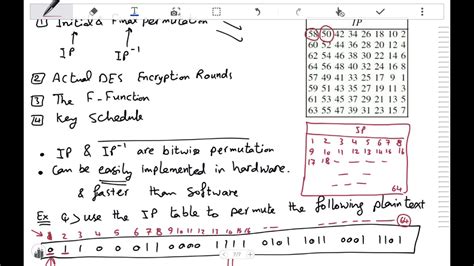 1 Initial & Final permutation
IP IP-1
2 Actual DES Encryption Rounds
3 The F-Function
4 Key Schedule
• IP & IP-1 are bitwise permutation
• Can be easily implemented in hardware.
& faster than software
IP
58 50 42 34 26 18 10 2
60 52 44 36 28 20 12 4
62 54 46 38 30 22 14 6
64 56 48 40 32 24 16 8
57 49 41 33 25 17 9 1
59 51 43 35 27 19 11 3
61 53 45 37 29 21 13 5
63 55 47 39 31 23 15 7
IP
1 2 3 4 5 6 7 8
9 10 11 12 13 14 15 16
17 18
64
Ex Q> use the IP table to permute the following plain text
1 2 3 4 5 6 7 8 9 10 11 12 13 14 15 16 64
0 1 1 0 0 0 1 1 0000 1111 0101 1011 0001 1101